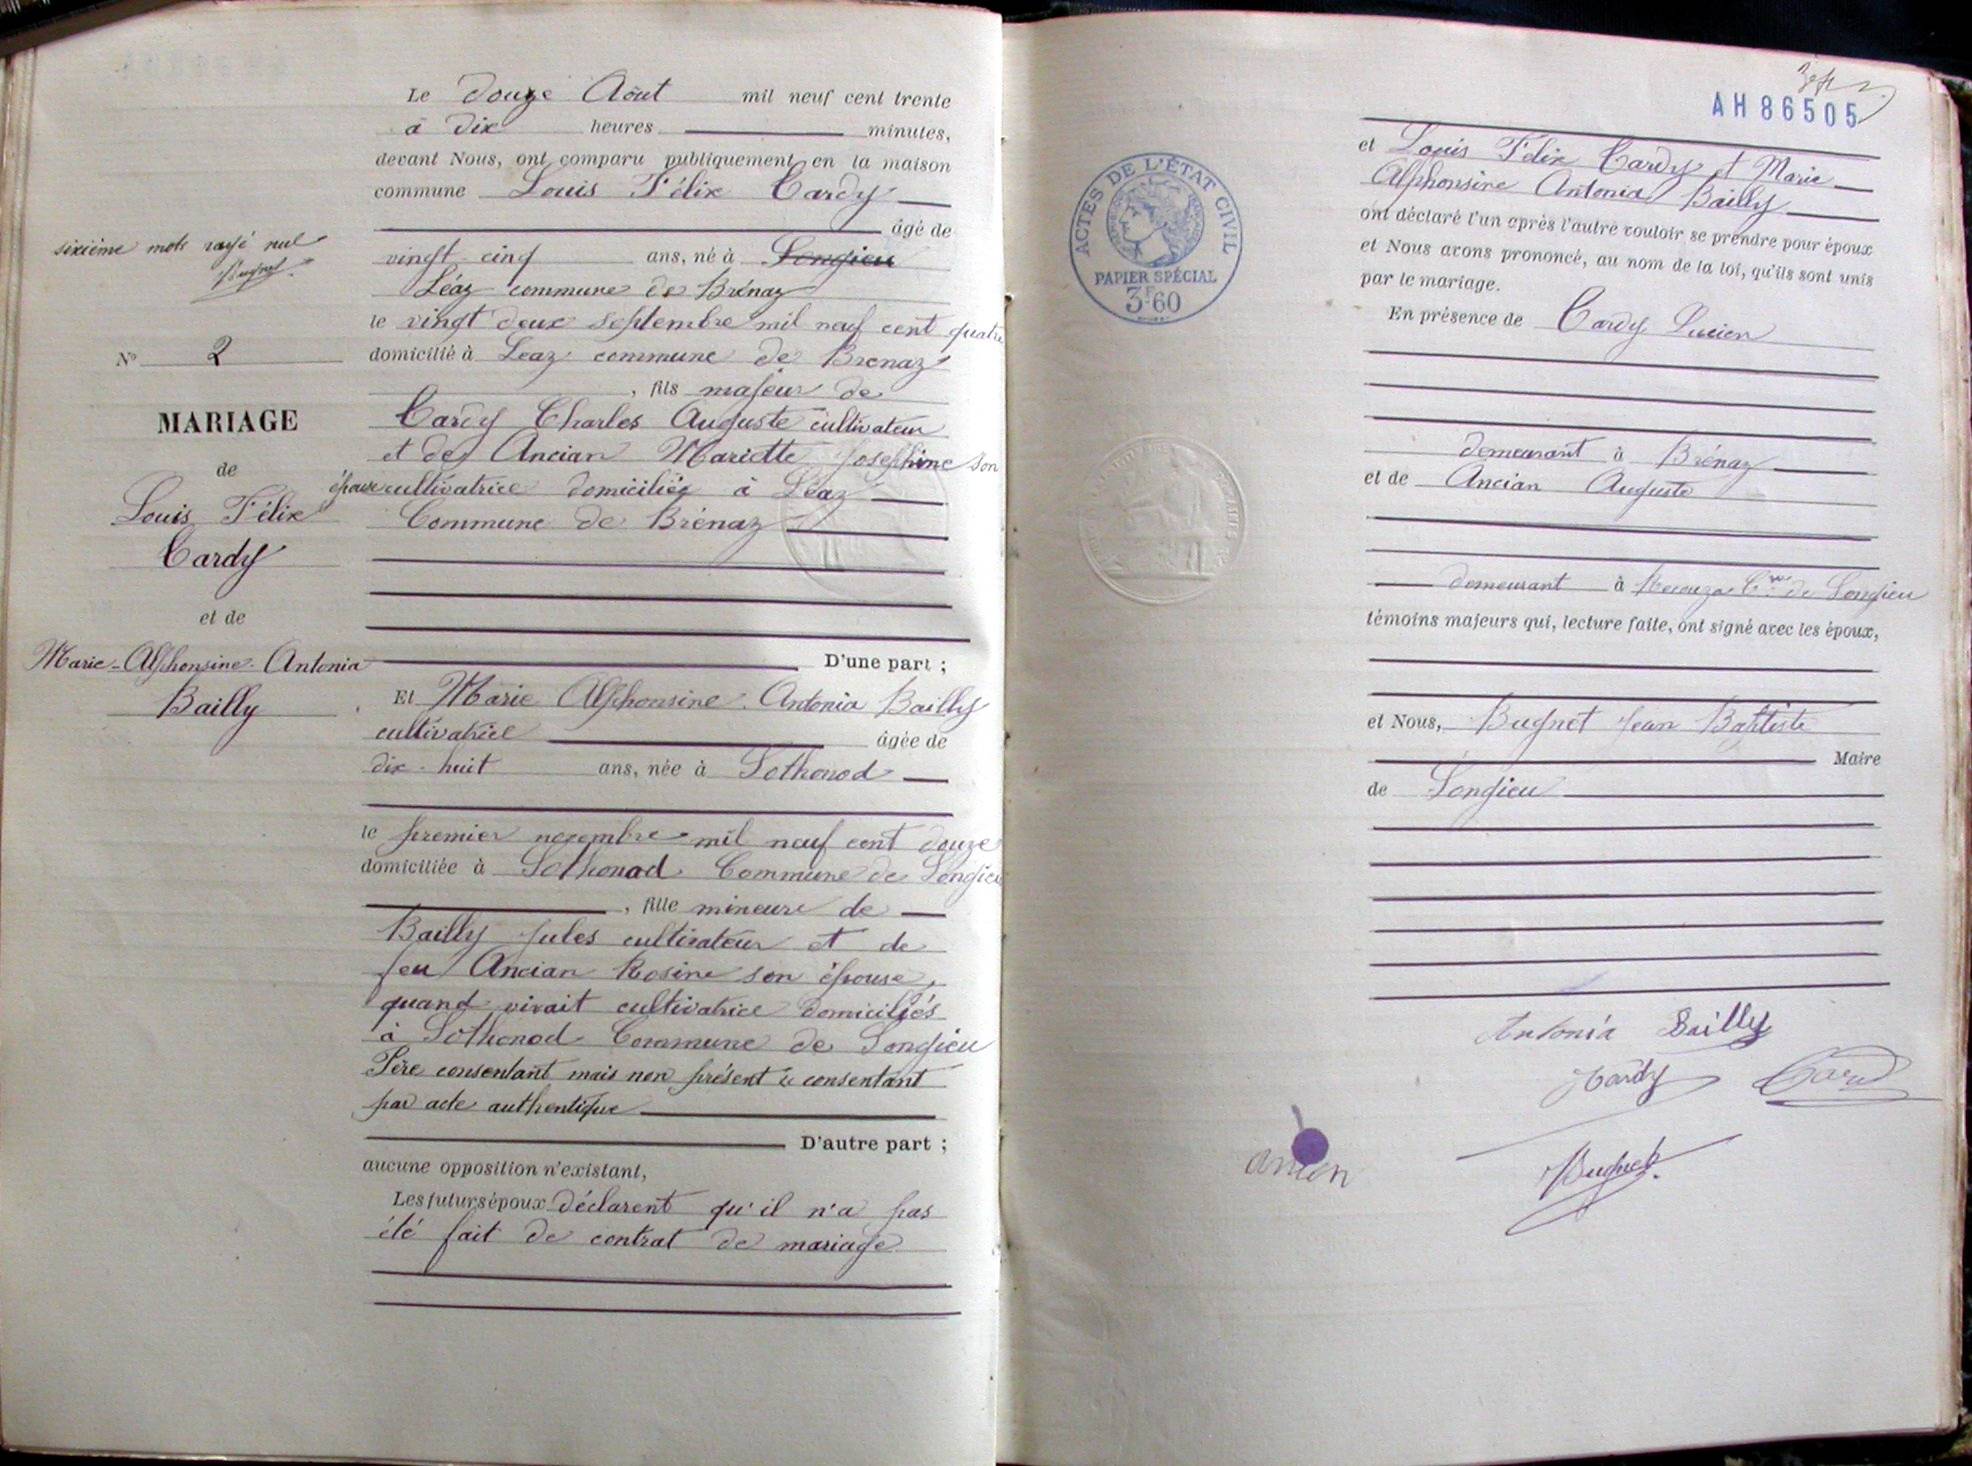 Le douze Août mil neuf cent trente
à dix heures minutes,
devant Nous, ont comparu publiquement en la maison
commune Louis Félix Cardy
âgé de
sixième mots rayé nul
Bugnet
vingt cinq ans, né à Songieu
Léaz commune de Brénaz
le vingt deux septembre mil neuf cent quatre
N° 2
domicilié à Léaz commune de Brénaz
, fils majeur de
MARIAGE
de
Louis Félix
Cardy
et de
Marie-Alphonsine-Antonia
Bailly
Cardy Charles Auguste cultivateur
et de Ancian Mariette Joséphine son
épouse cultivatrice domiciliés à Léaz
Commune de Brénaz
D'une part ;
Et Marie Alphonsine Antonia Bailly
cultivatrice âgée de
dix-huit ans, née à Sothonod
le premier novembre mil neuf cent douze
domiciliée à Sothonod Commune de Songieu
, fille mineure de
Bailly Jules cultivateur et de
feu Ancian Rosine son épouse,
quand vivait cultivatrice domiciliés
à Sothonod Commune de Songieu
Père consentant mais non présent consentant
par acte authentique
D'autre part ;
aucune opposition n'existant,
Les futurs époux déclarent qu'il n'a pas
été fait de contrat de mariage
AH 86505
ACTES DE L'ÉTAT CIVIL
PAPIER SPÉCIAL
3F60
et Louis Félix Cardy et Marie
Alphonsine Antonia Bailly
ont déclaré l'un après l'autre vouloir se prendre pour époux
et Nous avons prononcé, au nom de la loi, qu'ils sont unis
par le mariage.
En présence de Cardy Lucien
demeurant à Brénaz
et de Ancian Auguste
demeurant à Cne de Songieu
témoins majeurs qui, lecture faite, ont signé avec les époux,
et Nous, Bugnet Jean Baptiste
Maire
de Songieu
Antonia Bailly
Cardy Cardy
Bugnet